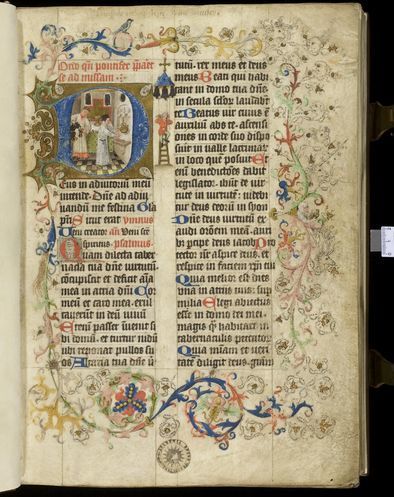 Ordo qn̄ pontifex ꝓpaͣt
se ad missam
Eus in adiutoriū meū
intende. Dn̄e ad adiu
uandū me festina Gla
pr̄i Sicut erat ymnus
Veni creator añ Veni scē
spiritus. psalmus.
Quam dilecta taber
nacula tua dn̄e virtutū
cōcupiscit et deficit aīa
mea in atria dn̄i Cor
meū et caro mea exul
tauerūt in deū uiuū
Etenī passer inuenit si
bi domū. et turtur nidū
ubi reponat pullos su
os Altaria tua dn̄e
tutū. rex meus et deus
meus Beati qui habi
tant in domo tua dn̄e
in secula sclor̄ laudabt
te Beatus uir cuius ē
auxiliū abs te. ascensi
ones in corde suo dispo
suit in ualle lacrimar̄
in loco quē posuit Et
enī benedictōes dabit
legislator. ibūt de uir
tute in uirtutē. uidebit
deus deorū in syon
Dn̄e deus uirtutū ex
audi orōem meā. auri
bus percipe deus iacob Pro
tector nr̄ aspice deus. et
respice in faciem xp̄i tui
Quia melior est dies
vna in atriis tuis. sup
milia Elegi abiectus
esse in domo dei mei.
magis qͣ habitare in
tabernaculis peccatorū
Quia miam et veri
tatē diligit deus. gram